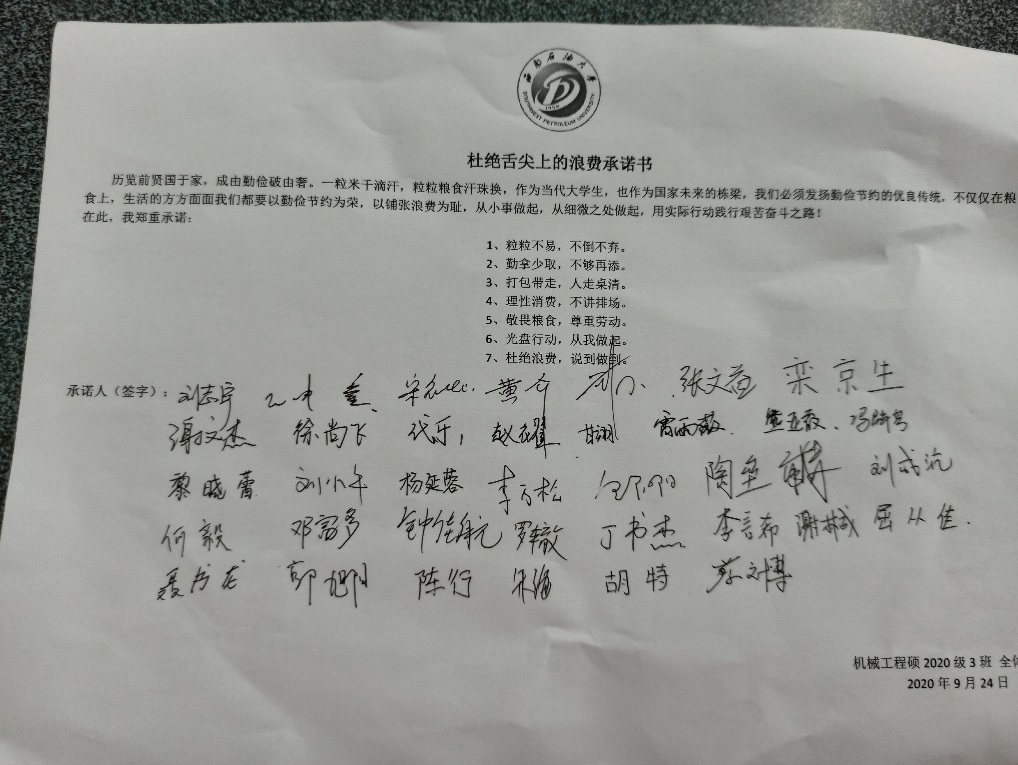 西南石油大学
SOUTHWEST PETROLEUM UNIVERSITY
1958
杜绝舌尖上的浪费承诺书
历览前贤国于家，成由勤俭破由奢。一粒米千滴汗，粒粒粮食汗珠换，作为当代大学生，也作为国家未来的栋梁，我们必须发扬勤俭节约的优良传统，不仅仅在粮
食上，生活的方方面面我们都要以勤俭节约为荣，以铺张浪费为耻，从小事做起，从细微之处做起，用实际行动践行艰苦奋斗之路！
在此，我郑重承诺：
1、粒粒不易，不倒不弃。
2、勤拿少取，不够再添。
3、打包带走，人走桌清。
4、理性消费，不讲排场。
5、敬畏粮食，尊重劳动。
6、光盘行动，从我做起。
7、杜绝浪费，说到做到。
承诺人（签字）：刘志宇 黄介 张文益 栾京生
谢文杰 徐尚飞 赵耀 甘翔 雷雨薇
黎晓蕾 刘小午 杨延蓉 李方松 陶垒 刘成沆
何毅 邓富多 钟佳航 罗辙 丁书杰 李言希 谢林城 屈从佳
聂乃龙 彭旭 陈行 朱海 胡特 苏文博
机械工程硕 2020 级 3 班 全体
2020 年 9 月 24 日